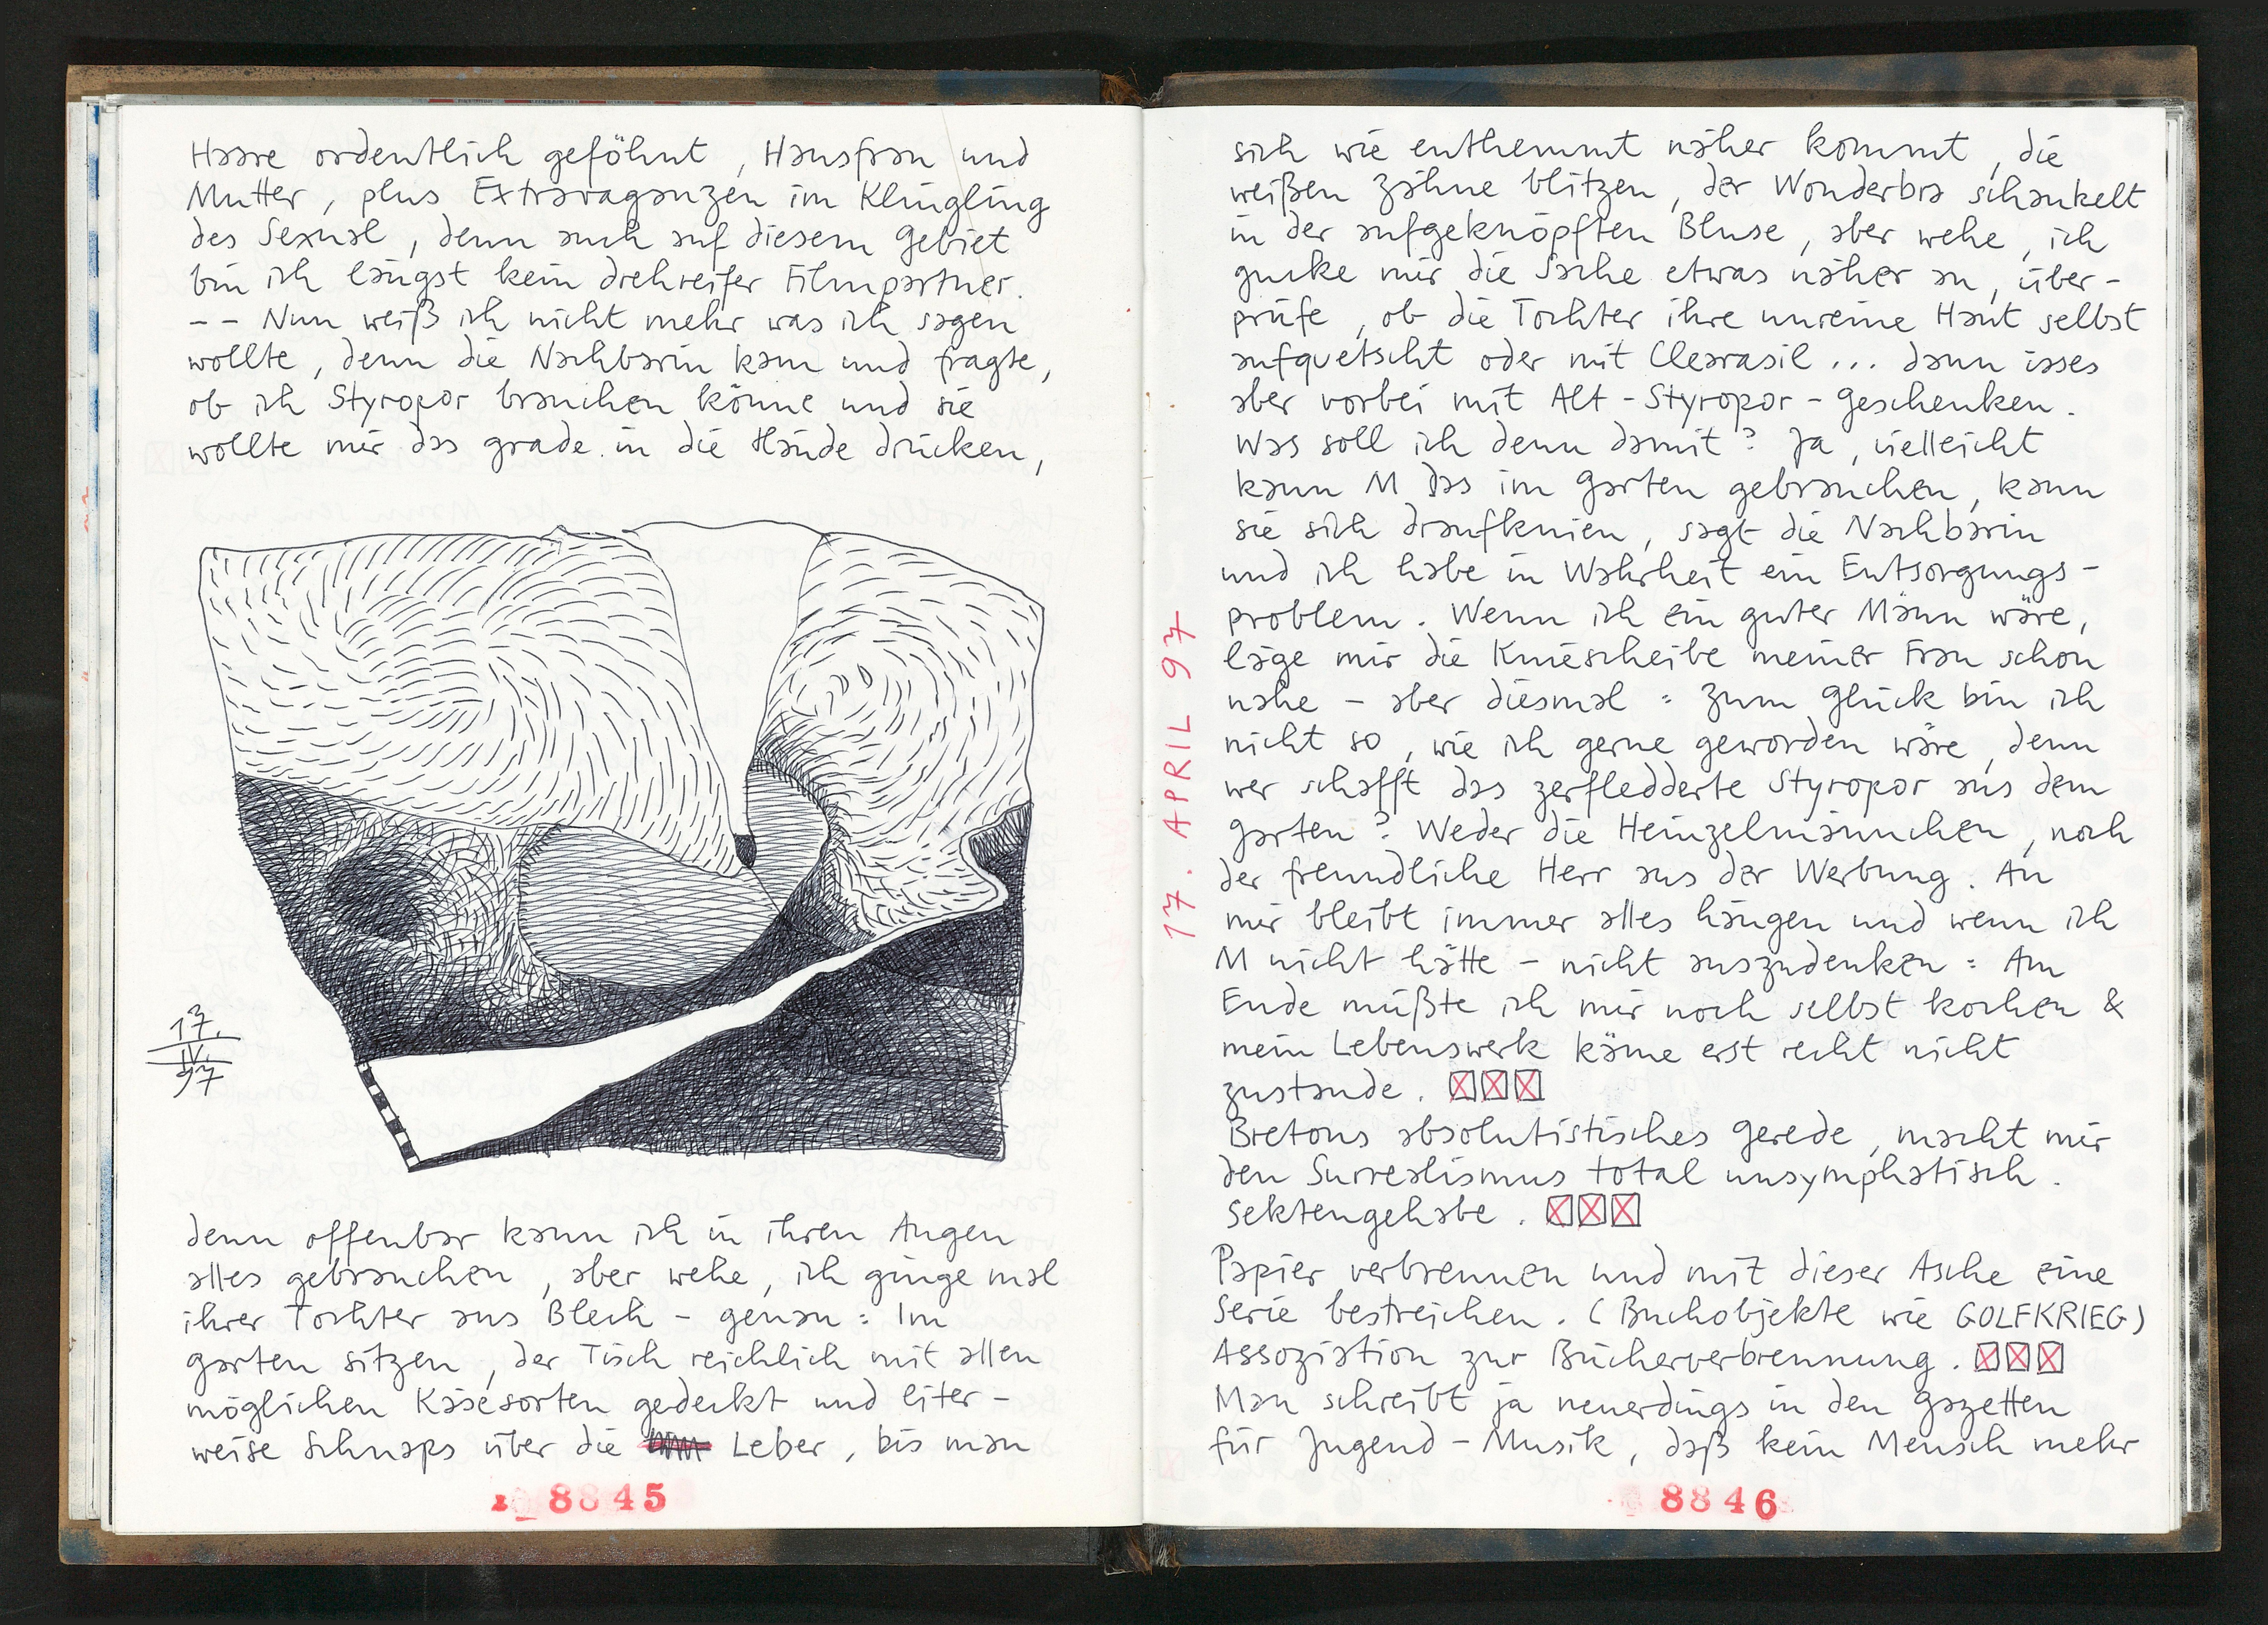 Haare ordentlich geföhnt, Hausfrau und
Mutter, plus Extravaganzen im Klingling
des Sexual, denn auch auf diesem Gebiet
bin ich längst kein drehreifer Filmpartner.
-- Nun weiß ich nicht mehr was ich sagen
wollte, denn die Nachbarin kam und fragte,
ob ich Styropor brauchen könne und sie
wollte mir das grade in die Hände drücken,
17.
IV.
97
denn offenbar kann ich in ihren Augen
alles gebrauchen, aber wehe, ich ginge mal
ihrer Tochter aus Blech - genau: Im
Garten sitzen, der Tisch reichlich mit allen
möglichen Käsesorten gedeckt und liter-
weise Schnaps über die Leber, bis man
8845
17. APRIL 97
sich wie enthemmt näher kommt, die
weißen Zähne blitzen, der Wonderbra schaukelt
in der aufgeknöpften Bluse, aber wehe, ich
gucke mir die Sache etwas näher an, über-
prüfe, ob die Tochter ihre unreine Haut selbst
aufquetscht oder mit Clearasil ... dann isses
aber vorbei mit Alt-Styropor-Geschenken.
Was soll ich denn damit? Ja, vielleicht
kann M das im Garten gebrauchen, kann
sie sich draufknien, sagt die Nachbarin
und ich habe in Wahrheit ein Entsorgungs-
problem. Wenn ich ein guter Mann wäre,
läge mir die Kniescheibe meiner Frau schon
nahe - aber diesmal: Zum Glück bin ich
nicht so, wie ich gerne geworden wäre, denn
wer schafft das zerfledderte Styropor aus dem
Garten? Weder die Heinzelmännchen, noch
der freundliche Herr aus der Werbung. An
mir bleibt immer alles hängen und wenn ich
M nicht hätte - nicht auszudenken: Am
Ende müßte ich mir noch selbst kochen &
mein Lebenswerk käme erst recht nicht
zustande.
Bretons absolutistisches Gerede, macht mir
den Surrealismus total unsymphatisch.
Sektengehabe.
Papier verbrennen und mit dieser Asche eine
Serie bestreichen. (Buchobjekte wie GOLFKRIEG)
Assoziation zur Bücherverbrennung.
Man schreibt ja neuerdings in den Gazetten
für Jugend-Musik, daß kein Mensch mehr
8846